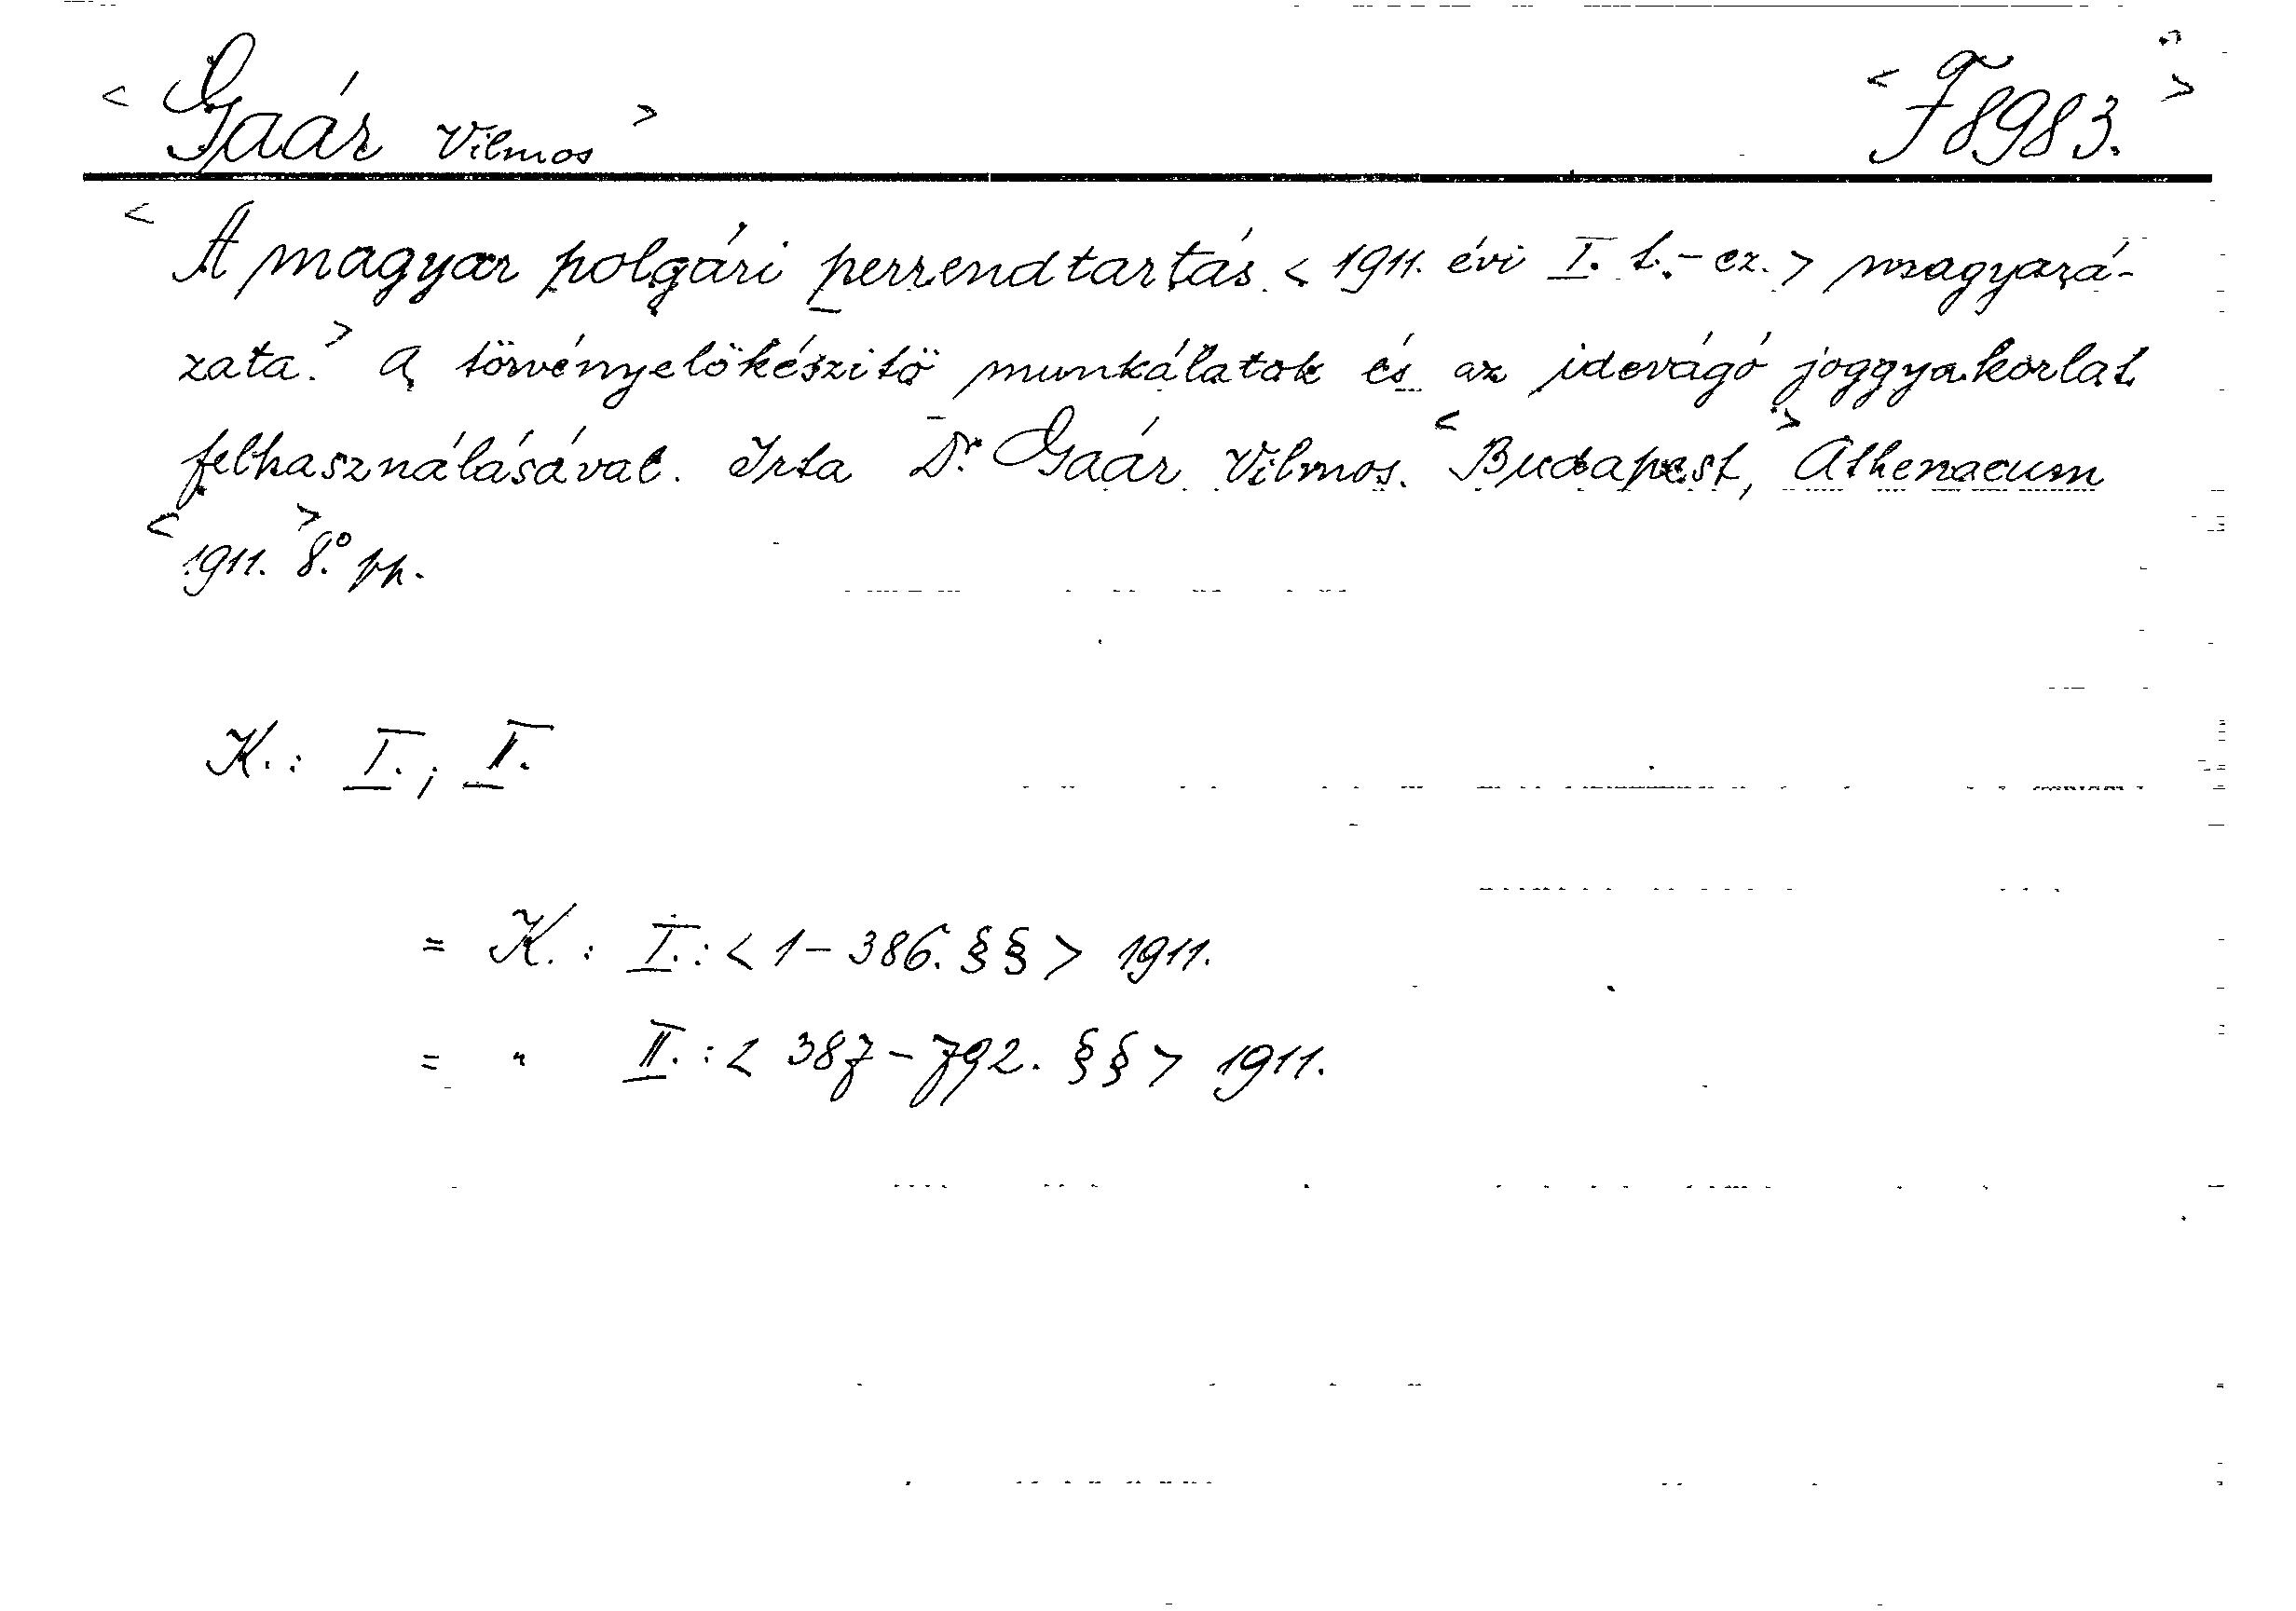 < Gaár Vilmos > < F 8983. >
< A magyar polgári perrendtartás < 1911. évi I. t.-cz. > magyará-
zata. > A törvényelökészitö munkálatok és az idevágó joggyakorlat
felhasználásával. Irta Dr. Gaár Vilmos. < Budapest, > Athenaeum
< 1911. > 8.° pp.
K.: I.; II.
= K.: I.: < 1 – 386. §§ > 1911.
= " II.: < 387 – 792. §§ > 1911.